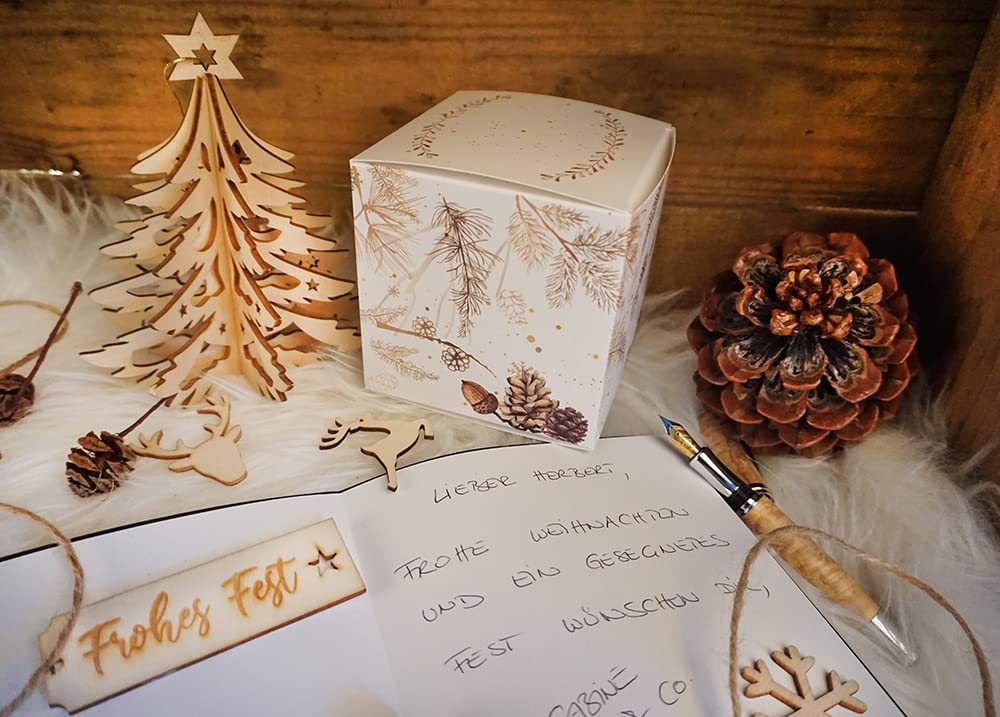 Frohes Fest
LIEBER HERBERT,
FROHE WEIHNACHTEN
UND EIN GESEGNETES
FEST WÜNSCHEN DIR,
SABINE
& CO.